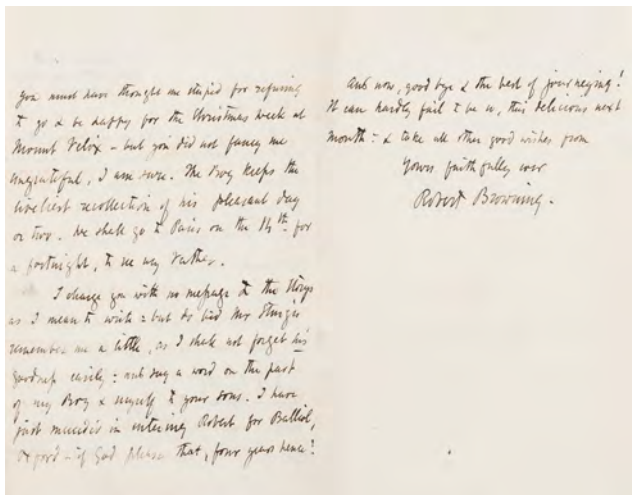 you must have thought me stupid for refusing
to go & be happy for the Christmas week at
Mount Felix – but you did not fancy me
ungrateful, I am sure. The Boy keeps the
liveliest recollection of his pleasant day
or two. We shall go to Paris on the 14th. for
a fortnight, to see my Father.
I charge you with no message to the Storys
as I mean to write : but do bid Mr Sturgis
remember me a little, as I shall not forget his
goodness easily : and say a word on the part
of my Boy & myself to your sons. I have
just succeeded in entering Robert for Balliol,
Oxford – if God please that, four years hence!
And now, good bye & the best of journeying!
It can hardly fail to be so, this delicious next
month : & take all other good wishes from
Yours faithfully ever
Robert Browning.